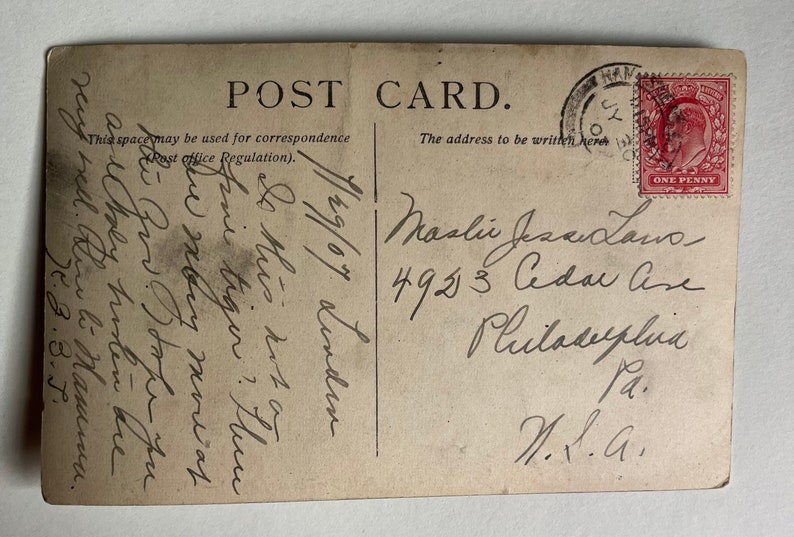 POST CARD.
This space may be used for correspondence
(Post office Regulation).
The address to be written here.
ONE PENNY
7/29/07 London
Is this not a
fine tiger? There
are many more at
the Zoo. Hope you
and baby
very well. Love to Mamma.
Master Jesse
4923 Cedar Ave
Philadelphia
Pa.
U.S.A.